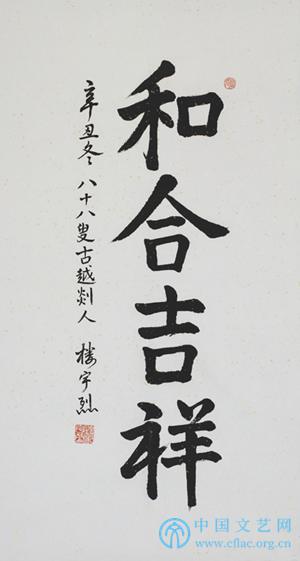 和合吉祥
辛丑冬 八十八叟古越剡人 楼宇烈
中国文艺网
www.cflac.org.cn